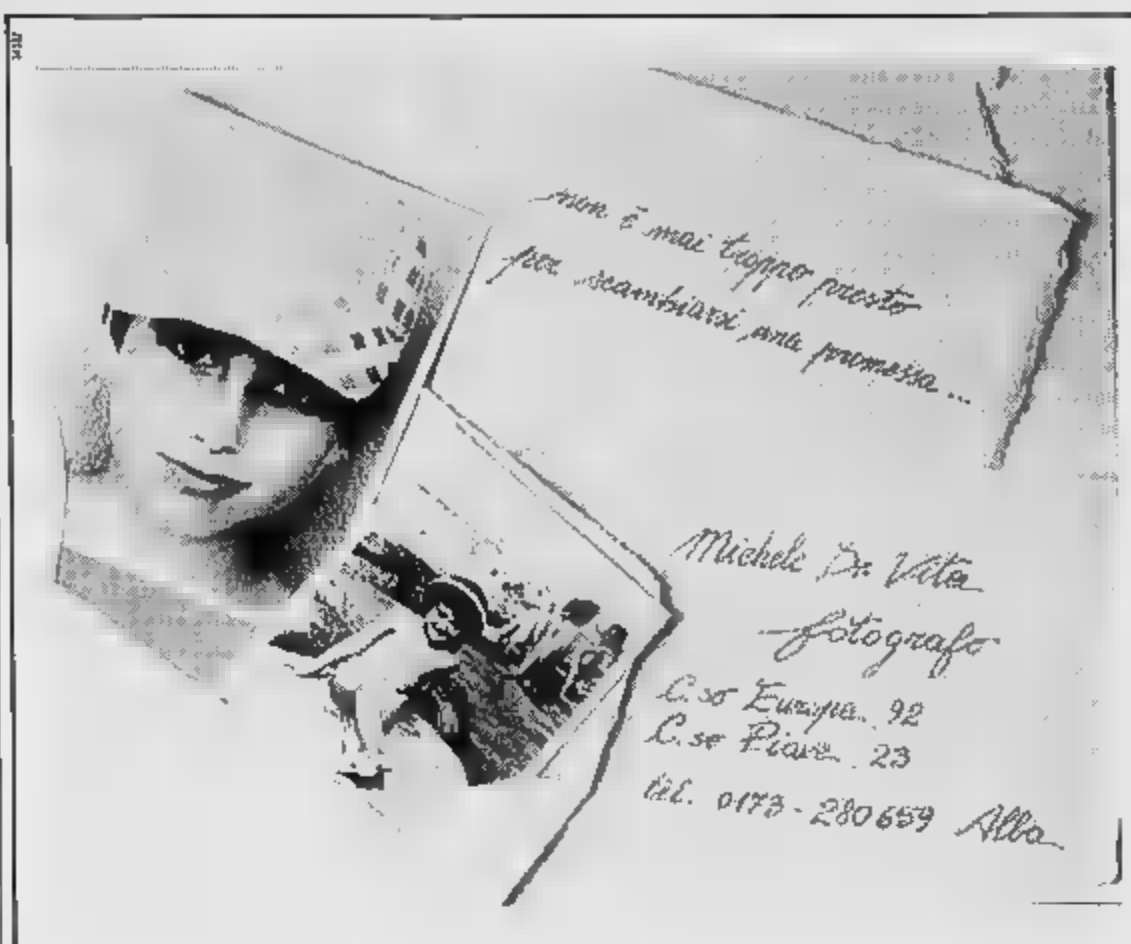 non è mai troppo presto
per scambiarsi una promessa...
Michele De Vita
fotografo
C.so Europa 92
C.so Piave 23
tel. 0173-280659 Alba